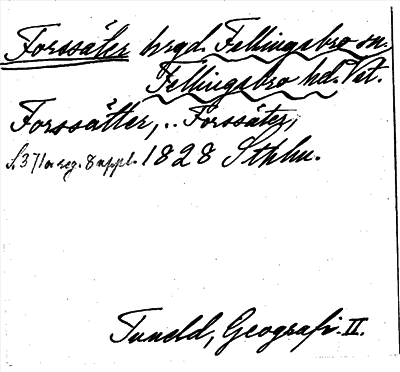 Forssäter hrgd. Fellingsbro sn.
Fellingsbro hd. Vstl.
Forssätter, .. Forssäter,
S. 371 a reg. 8 uppl. 1828 Sthlm.
Tuneld, Geografi. II.